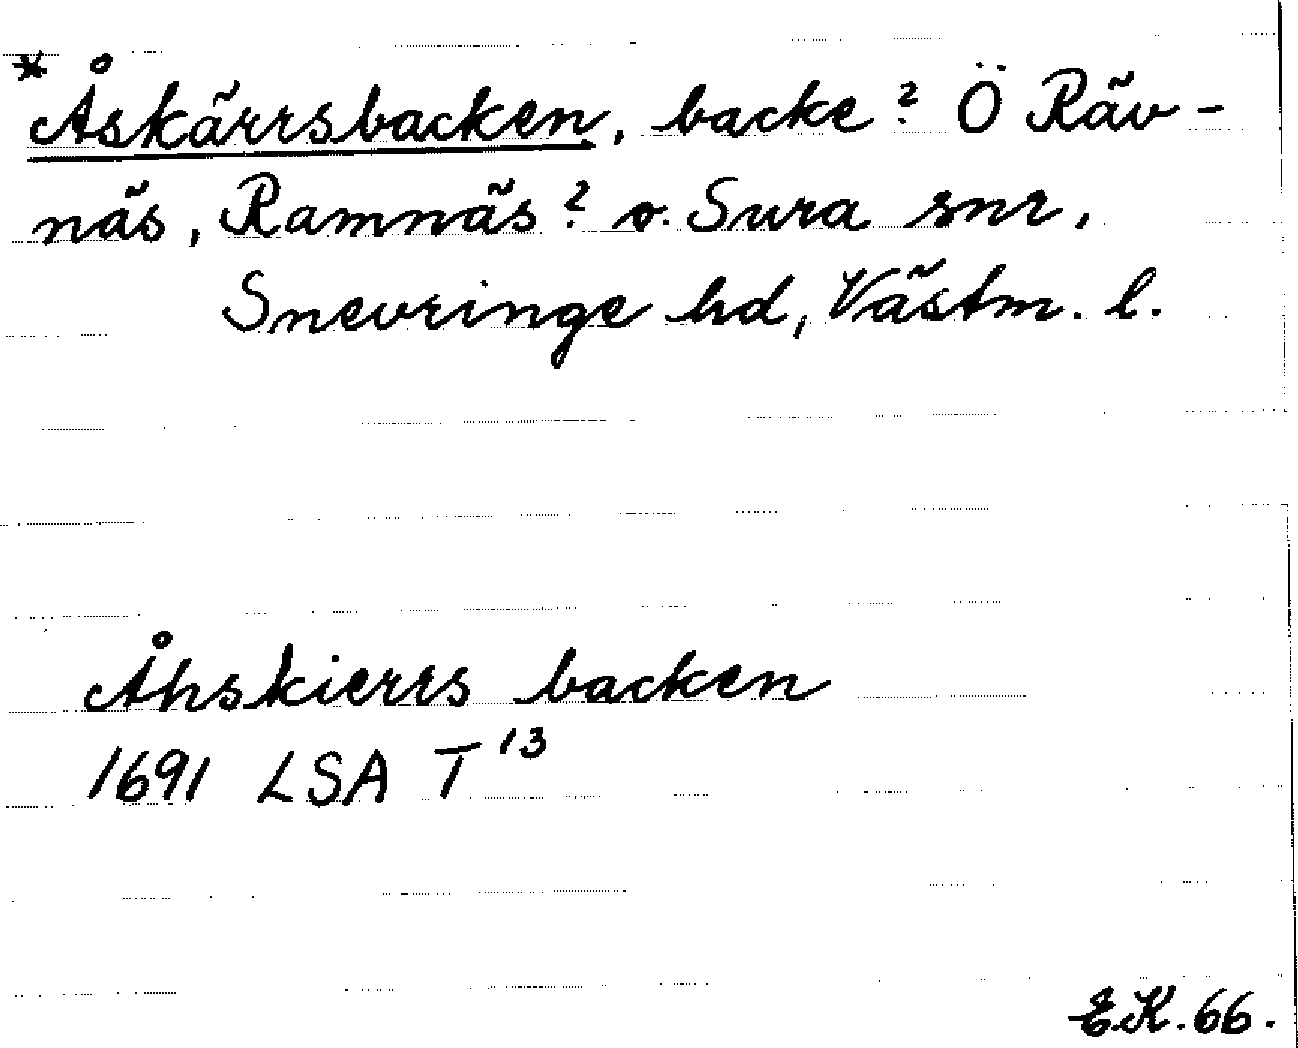 *Åskärrsbacken, backe? Ö Räv-
näs, Ramnäs? o. Sura snr,
Snevringe hd, Västm. l.
Åhskierrs backen
1691 LSA T 13
E.K. 66.